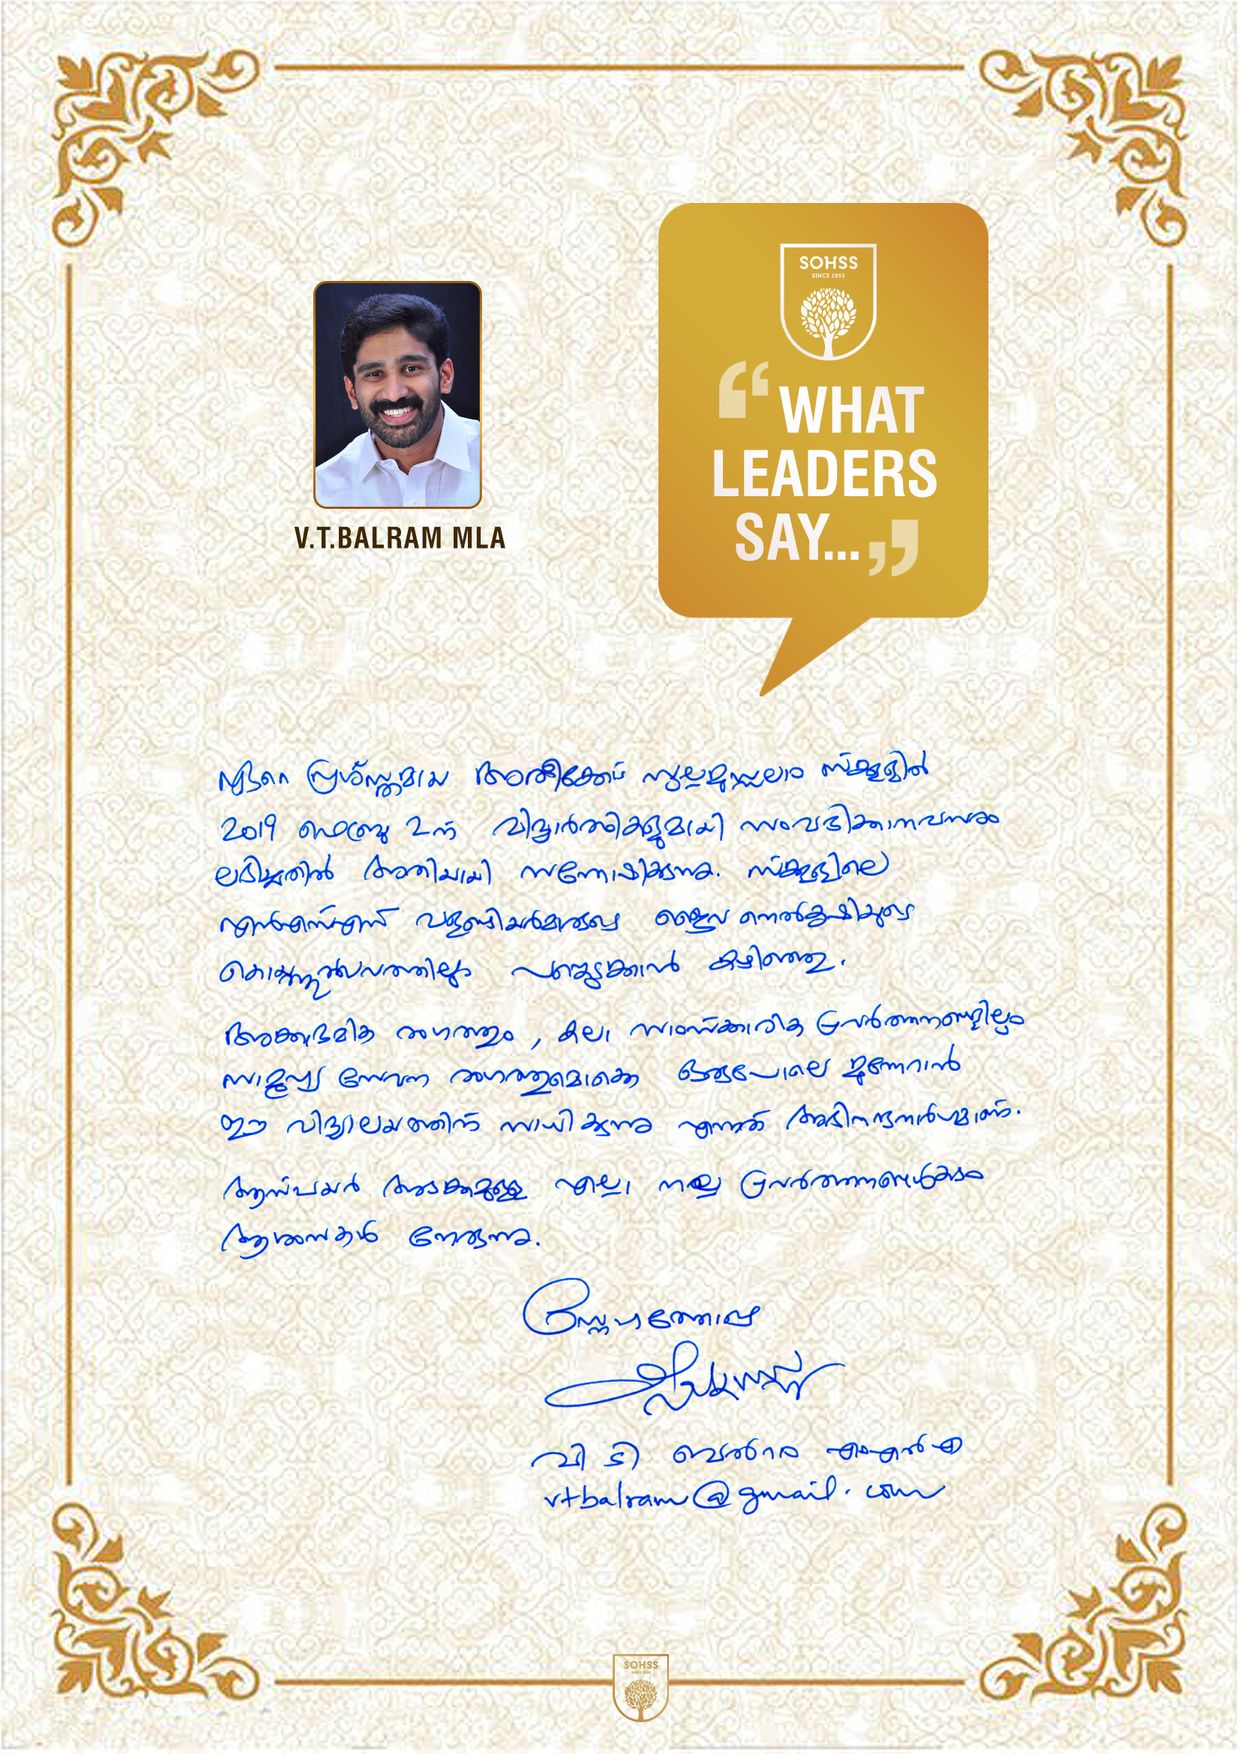 SOHSS
SINCE 1955
“WHAT
LEADERS
SAY...”
V.T.BALRAM MLA
ഏറെ പ്രശസ്തമായ അരീക്കോട് സുല്ലമുസ്സലാം സ്കൂളിൽ
2019 ഫെബ്രു 2ന് വിദ്യാർത്ഥികളുമായി സംവദിക്കാനവസരം
ലഭിച്ചതിൽ അതിയായി സന്തോഷിക്കുന്നു. സ്ക്കൂളിലെ
എൻഎസ്എസ് വളണ്ടിയർമാരുടെ ജൈവ നെൽകൃഷിയുടെ
കൊയ്ത്തുൽസവത്തിലും പങ്കെടുക്കാൻ കഴിഞ്ഞു.
അക്കാദമിക രംഗത്തും, കലാ സാംസ്ക്കാരിക പ്രവർത്തനങ്ങളിലും
സാമൂഹ്യ സേവന രംഗത്തുമൊക്കെ ഒരുപോലെ മുന്നേറാൻ
ഈ വിദ്യാലയത്തിന് സാധിക്കുന്നു എന്നത് അഭിനന്ദനാർഹമാണ്.
ആസ്പയർ അടക്കമുള്ള എല്ലാ നല്ല പ്രവർത്തനങ്ങൾക്കും
ആശംസകൾ നേരുന്നു.
സ്നേഹത്തോടെ
വി ടി ബൽറാം എംഎൽഎ
vtbalram@gmail.com
SOHSS